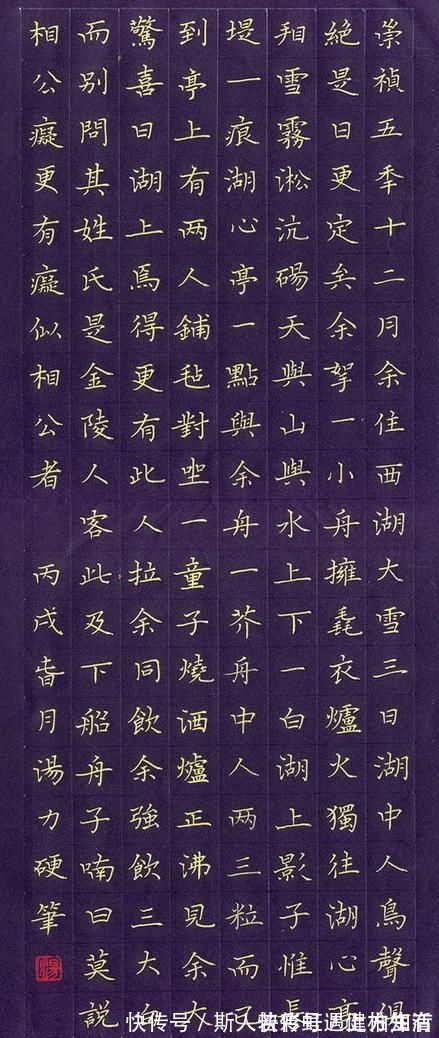 崇禎五季十二月余住西湖大雪三日湖中人鳥聲俱
絶是日更定矣余拏一小舟擁毳衣爐火獨往湖心亭
看雪霧淞沆碭天與山與水上下一白湖上影子惟長
堤一痕湖心亭一點與余舟一芥舟中人两三粒而已
到亭上有两人鋪毡對坐一童子燒酒爐正沸見余大
驚喜曰湖上焉得更有此人拉余同飲余強飲三大白
而别問其姓氏是金陵人客此及下船舟子喃曰莫說
相公癡更有癡似相公者
丙戌春月湯力硬筆
湯
快传号／斯人